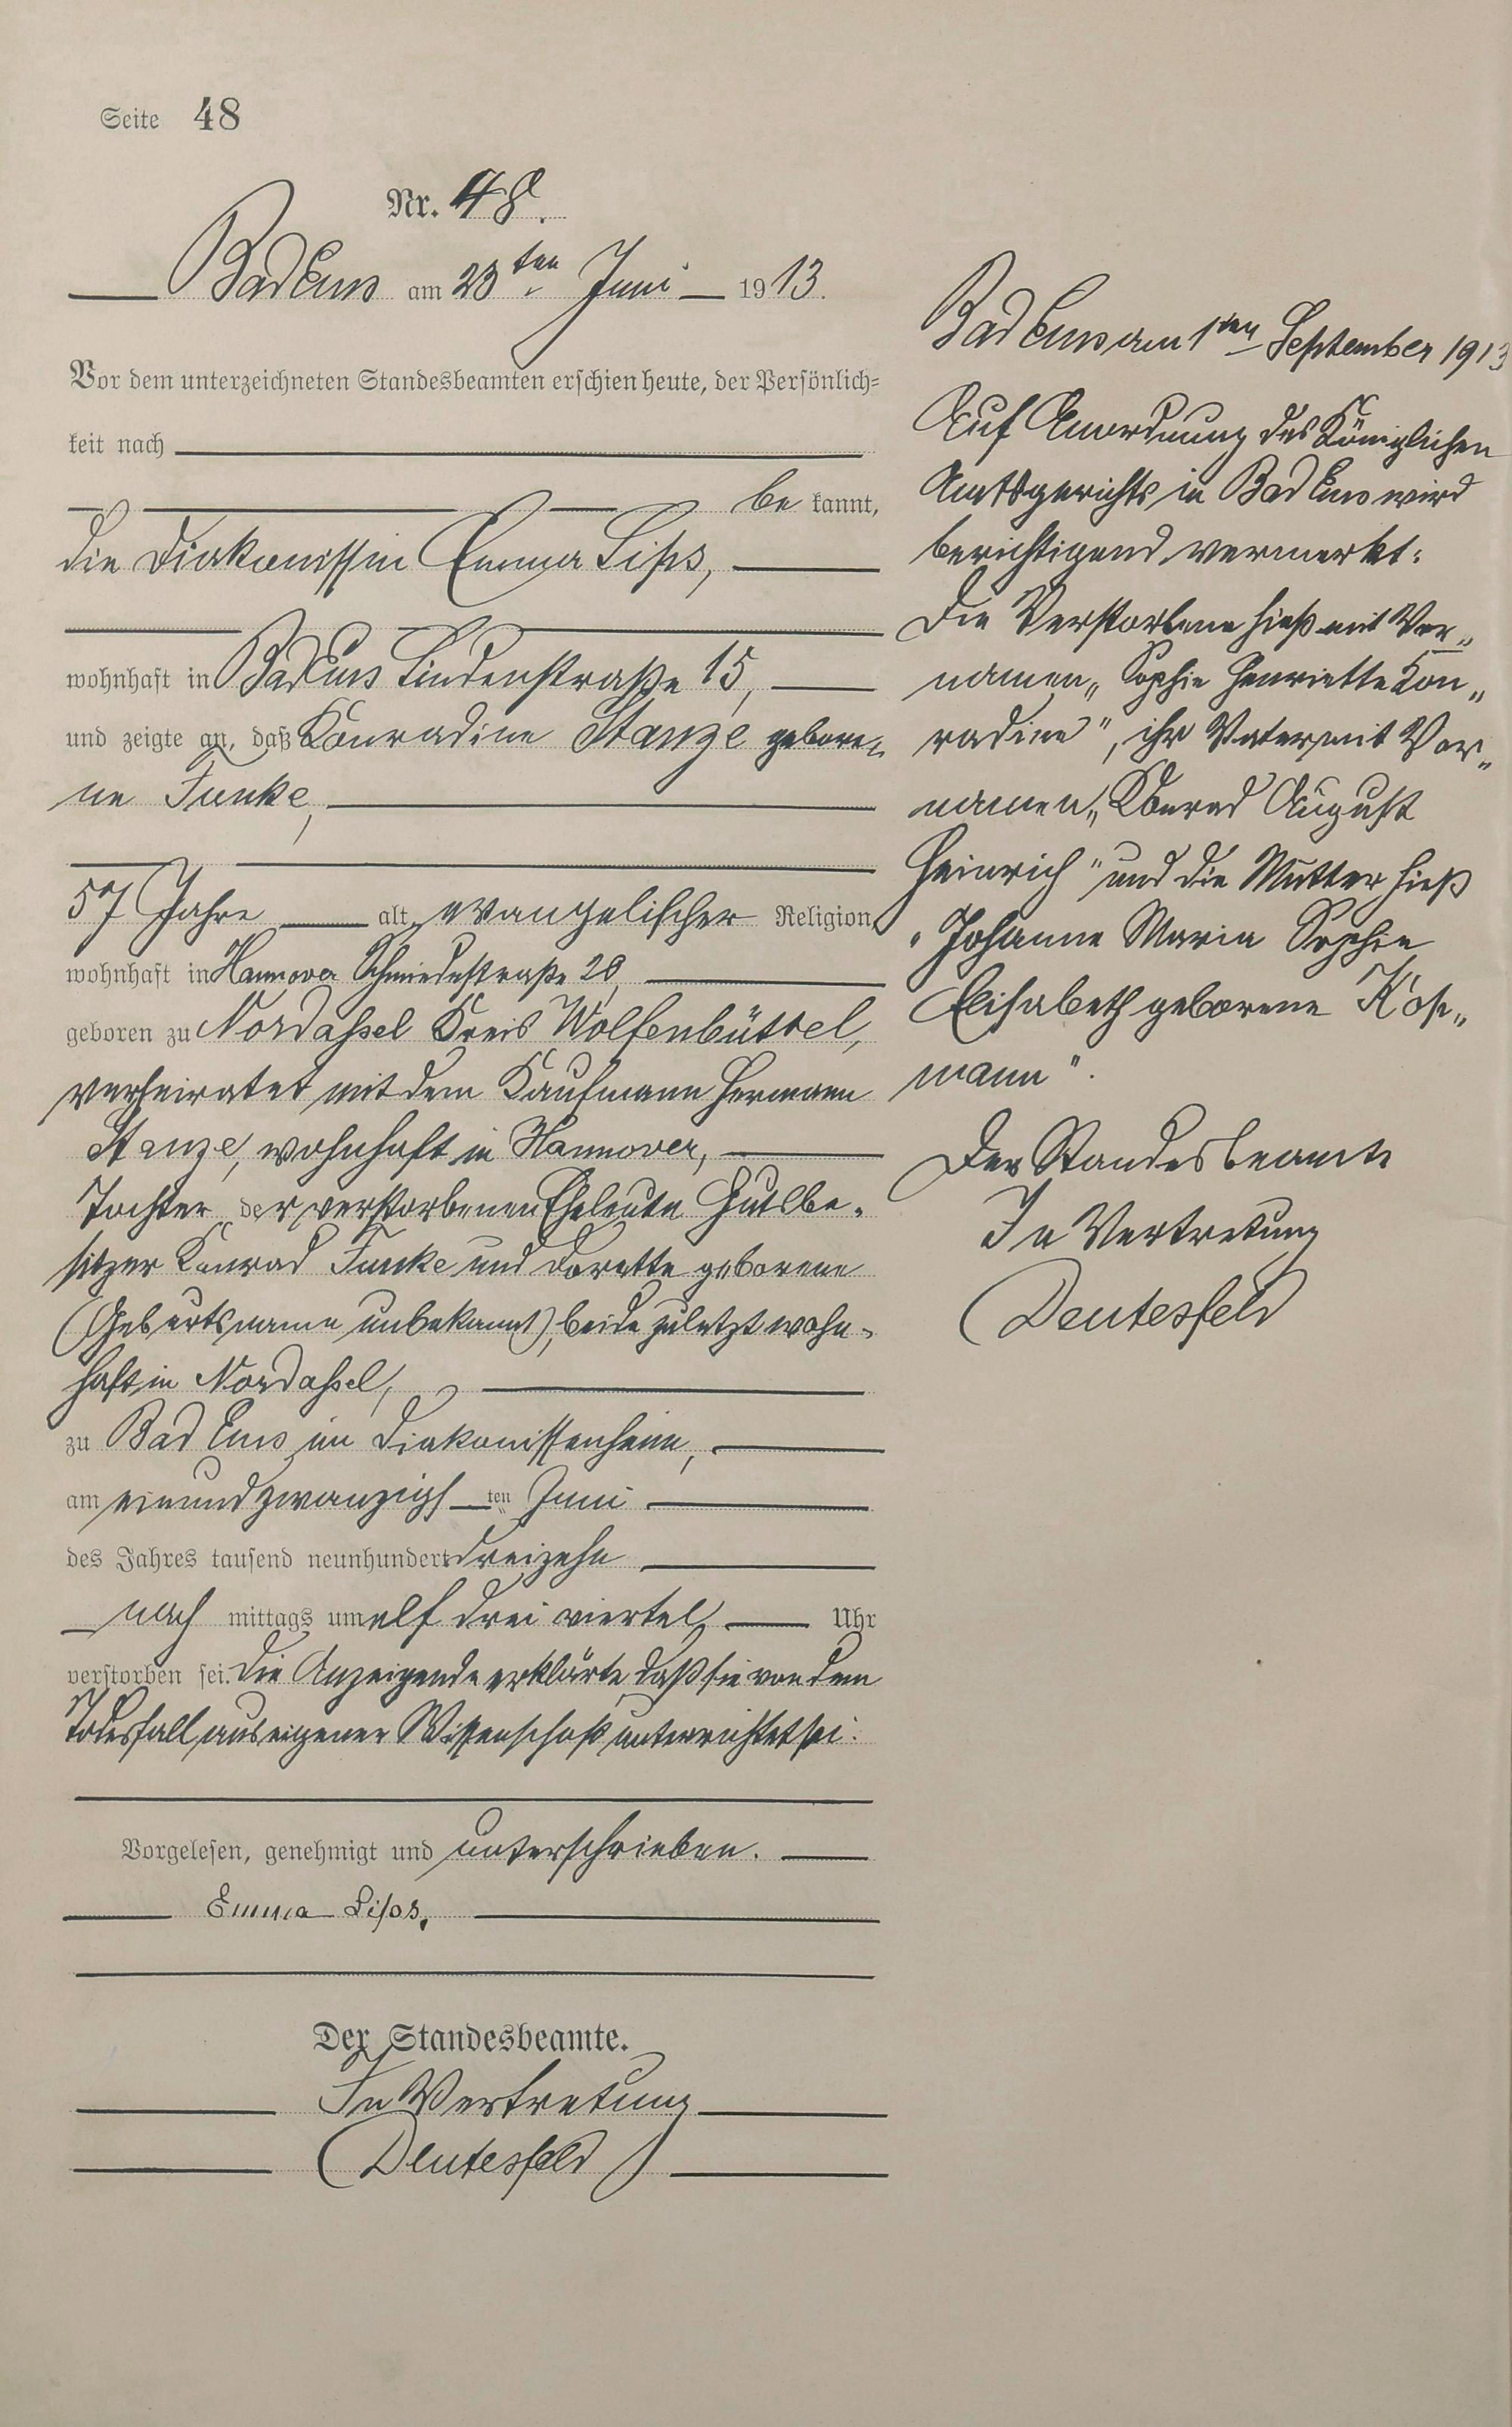 Seite 48
Nr. 48.
Bad Ems am 23ten Juni 1913.
Vor dem unterzeichneten Standesbeamten erschien heute, der Persönlich=
keit nach
be kannt,
die Diakonissin Emma Lips,
wohnhaft in Bad Ems Lindenstraße 15,
und zeigte an, daß Konradine Stanze gebore„
ne Funke,
57 Jahre alt, evangelischer Religion
wohnhaft in Hannover Schmiedestraße 20,
geboren zu Nordassel Kreis Wolfenbüttel,
verheiratet mit dem Kaufmann Hermann
Stanze, wohnhaft in Hannover,
Tochter der verstorbenen Eheleute Gutsbe„
sitzer Konrad Funke und Dorette geborene
(Geburtsname unbekannt), beide zuletzt wohn„
haft in Nordassel,
zu Bad Ems im Diakonissenheim,
am einundzwanzigsten Juni
des Jahres tausend neunhundert dreizehn
nach mittags um elf drei viertel Uhr
verstorben sei. Die Anzeigende erklärte, daß sie von dem
Todesfall aus eigener Wissenschaft unterrichtet sei.
Vorgelesen, genehmigt und unterschrieben.
Emma Lips.
Der Standesbeamte.
In Vertretung
Deutesfeld
Bad Ems am 1ten September 1913
Auf Anordnung des Königlichen
Amtsgerichts in Bad Ems wird
berichtigend vermerkt:
Die Verstorbene hieß mit Vor„
namen „Sophie Henriette Kon„
radine", ihr Vater mit Vor„
namen „Konrad August
Heinrich" und die Mutter hieß
„Johanne Maria Sophie
Elisabeth geborene Kose„
mann".
Der Standesbeamte
In Vertretung
Deutesfeld